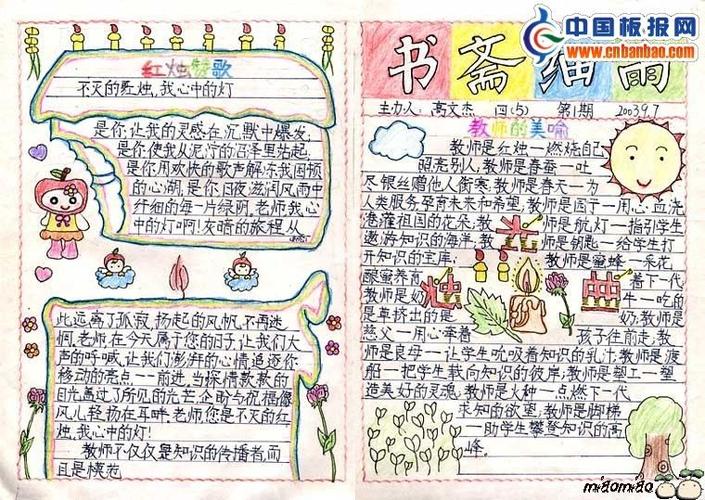 红烛赞歌
不灭的红烛,我心中的灯
是你让我的灵感在沉默中爆发,
是你使我从泥泞的沼泽里站起,
是你用欢快的歌声解冻我困顿
的心湖,是你日夜滋润风雨中
纤细的每一片绿阴,老师我心
中的灯啊!灰暗的旅程从
此远离了孤寂,扬起的风帆,不再迷
惘,老师,在今天属于您的日子,让我们大
声的呼喊,让我们澎湃的心情追逐你
移动的亮点--前进,当深情款款的
目光高过了所见的光芒企盼与祝福像
风儿轻扬在耳畔,老师您是不灭的红
烛,我心中的灯!
教师不仅仅是知识的传播者,而
且是模范
中国板报网
www.cnbanbao.com
书斋细雨
主办人:高文杰 四(5) 第1期 2003.9.7
教师的美喻
教师是红烛一燃烧自己
照亮别人;教师是春蚕一吐
尽银丝赠他人御寒;教师是春天一为
人类服务孕育未来和希望;教师是园丁一用心血浇
港灌祖国的花朵;教师是航灯一指引学生
遨游知识的海洋;教师是钥匙一给学生打
开知识的宝库;教师是蜜蜂一采花
酿蜜养育着下代
教师是奶牛一吃的
是草挤出的是奶;教师是
慈父一用心牵着孩子往前走;教
师是良母一让学生吮吸着知识的乳汁;教师是渡
船一把学生载向知识的彼岸;教师是塑工一塑
造美好的灵魂;教师是火种一点燃下一代
求知的欲望;教师是脚梯
一助学生攀登知识的高
峰。
光
烛
曲
miaomiao